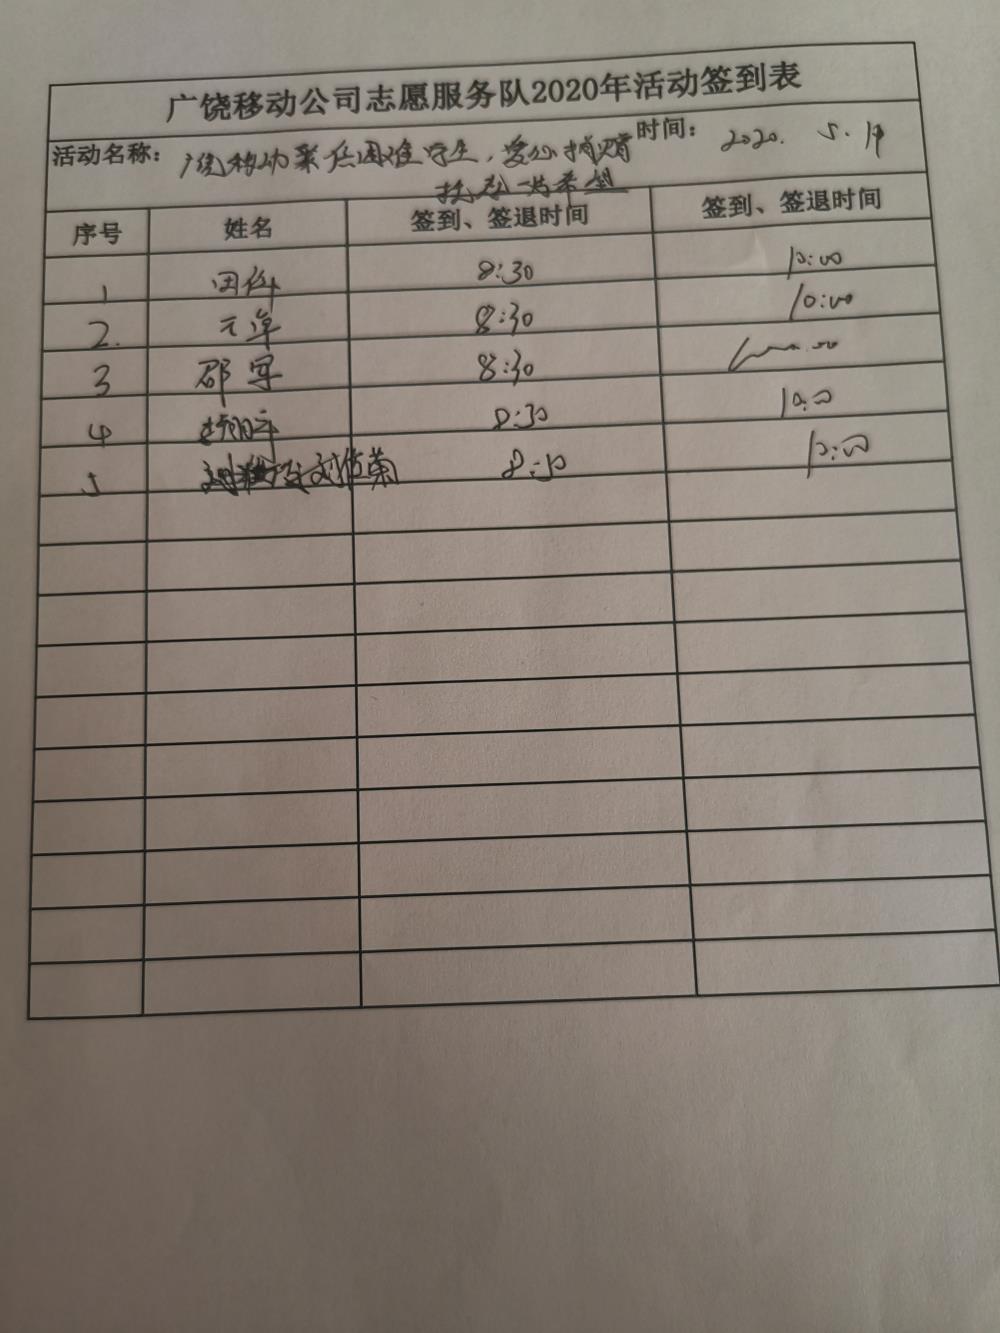 广饶移动公司志愿服务队2020年活动签到表
活动名称：广饶移动聚焦困难学生，爱心捐赠 时间：2020.5.19
托起一片希望
序号 姓名 签到、签退时间 签到、签退时间
1 田伟 8:30 10:00
2. 8:30 10:00
3 邵军 8:30
4 8:30 10:00
5 8:30 10:00